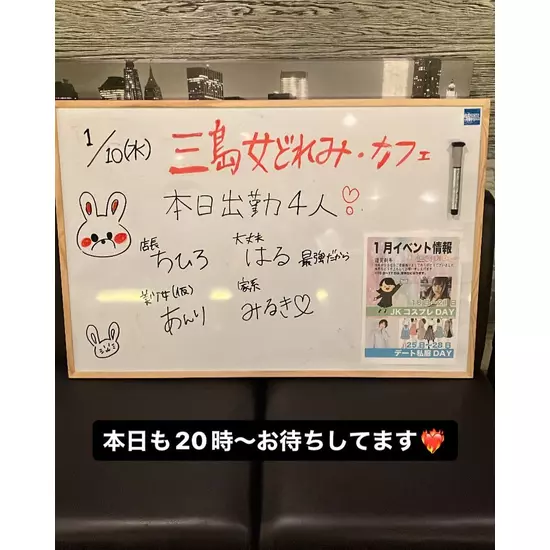 1/10(水) 三島女どれみ・カフェ
本日出勤4人
店長 ちひろ
大丈夫 はる 最強だから
美少年(仮) あんり
家系 みるき♡
1月イベント情報
JKコスプレDAY
25日~28日
デート私服DAY
本日も20時〜お待ちしてます❤️‍🔥